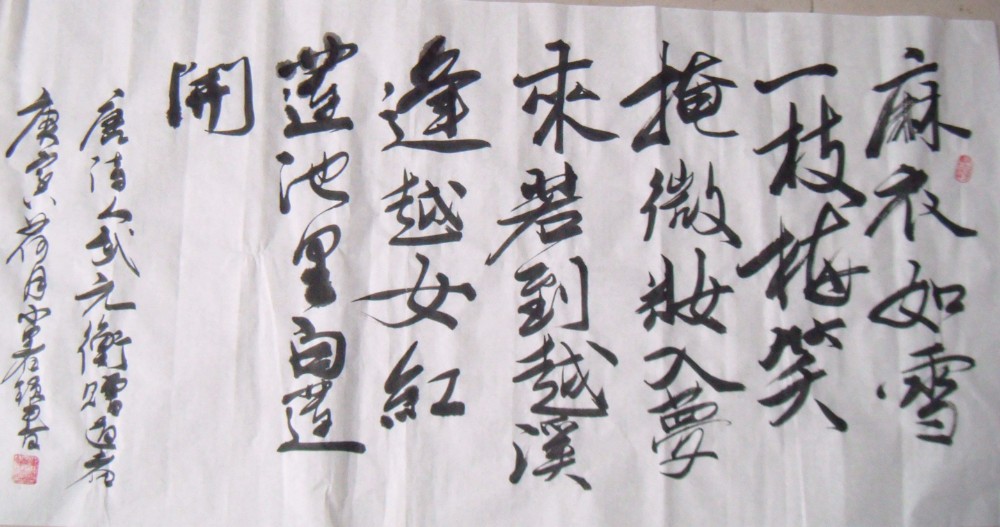 麻衣如雪
一枝梅笑
掩微妝入夢
来若到越溪
逢越女紅
蓮池里白蓮
開
唐诗人武元衡赠道者
庚寅荷月书